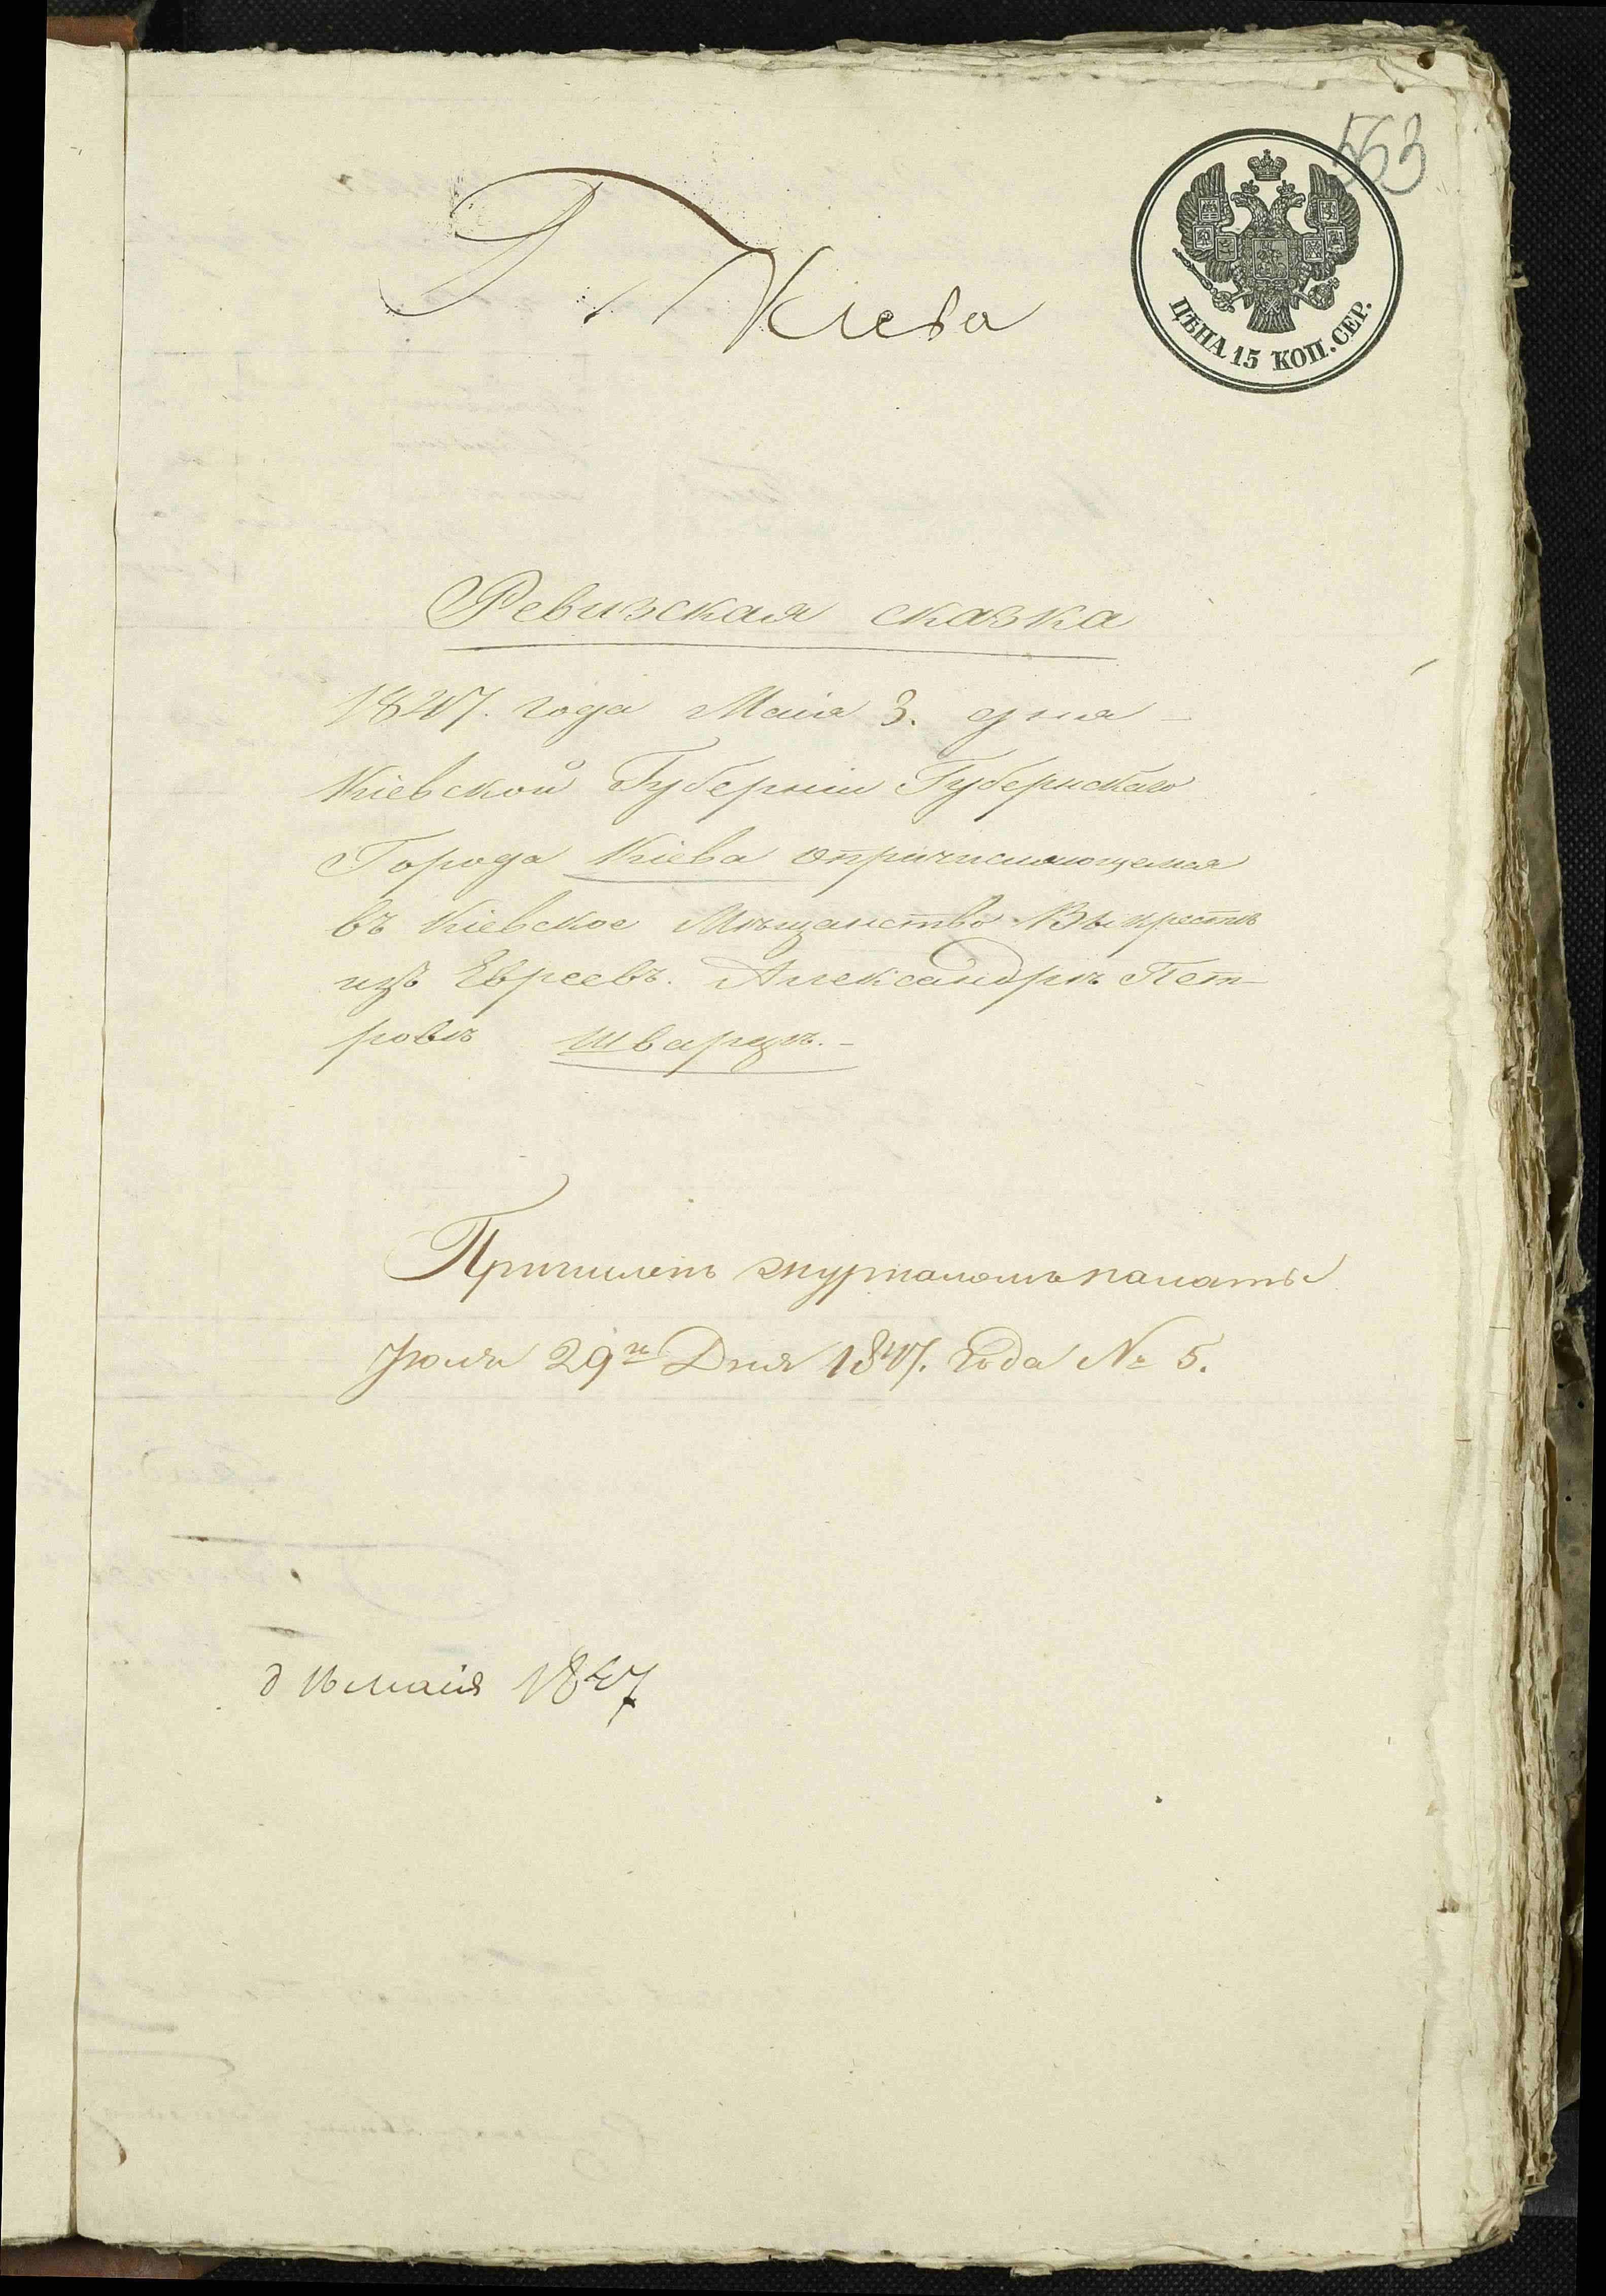 563
ЦѢНА 15 КОП. СЕР.
Г. Кіева
Ревизская сказка
1847. года Маія 3. дня
Кіевской Губерніи Губернскаго
Города Кіева опричисляющемся
въ Кіевское Мѣщанство Выкрестѣ
изъ Евреевъ. Александрѣ Пет-
ровѣ Шварцѣ.
Причисленъ журналомъ палаты
Іюля 29го Дня 1847. Года № 5.
маія 1847